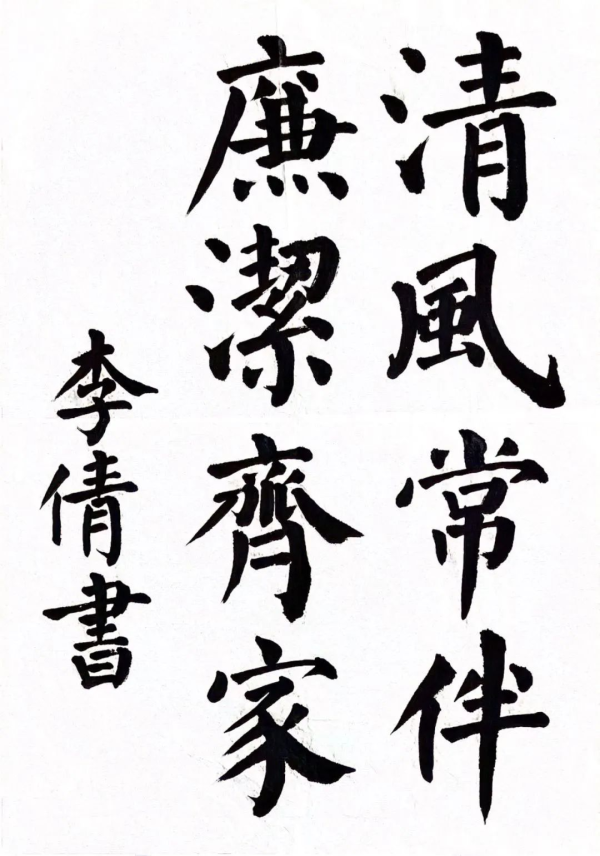 清風常伴
廉潔齊家
李倩書